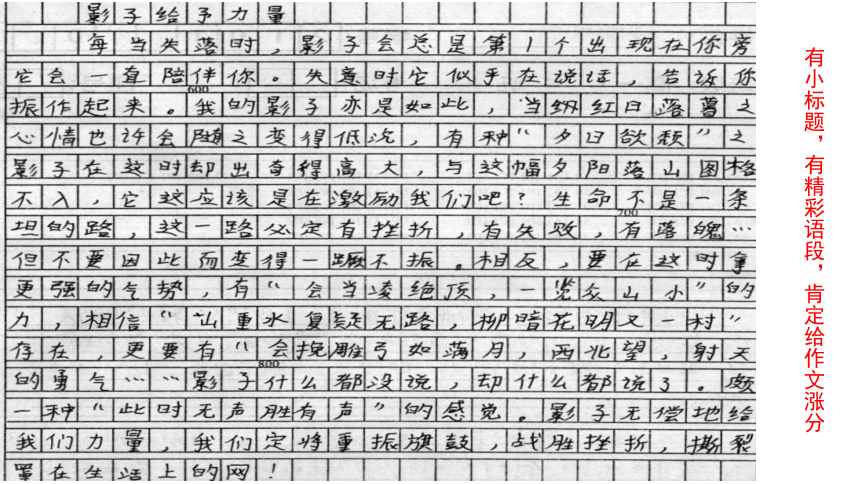 影子给予力量
每当失落时，影子会总是第1个出现在你旁
它会一直陪伴你。失意时它似乎在说话，告诉你
振作起来。我的影子亦是如此，当绚红日落暮之
600
心情也许会随之变得低沉，有种“夕日欲颓”之
影子在这时却出奇得高大，与这幅夕阳落山图格
不入，它这应该是在激励我们吧？生命不是一条
700
坦的路，这一路必定有挫折，有失败，有落魄…
但不要因此而变得一蹶不振。相反，要在这时拿
更强的气势，有“会当凌绝顶，一览众山小”的
力，相信“山重水复疑无路，柳暗花明又一村”
存在，更要有“会挽雕弓如满月，西北望，射天
800
的勇气……影子什么都没说，却什么都说了。颇
一种“此时无声胜有声”的感觉。影子无偿地给
我们力量，我们定将重振旗鼓，战胜挫折，撕裂
罩在生活上的网！
有小标题，有精彩语段，肯定给作文涨分